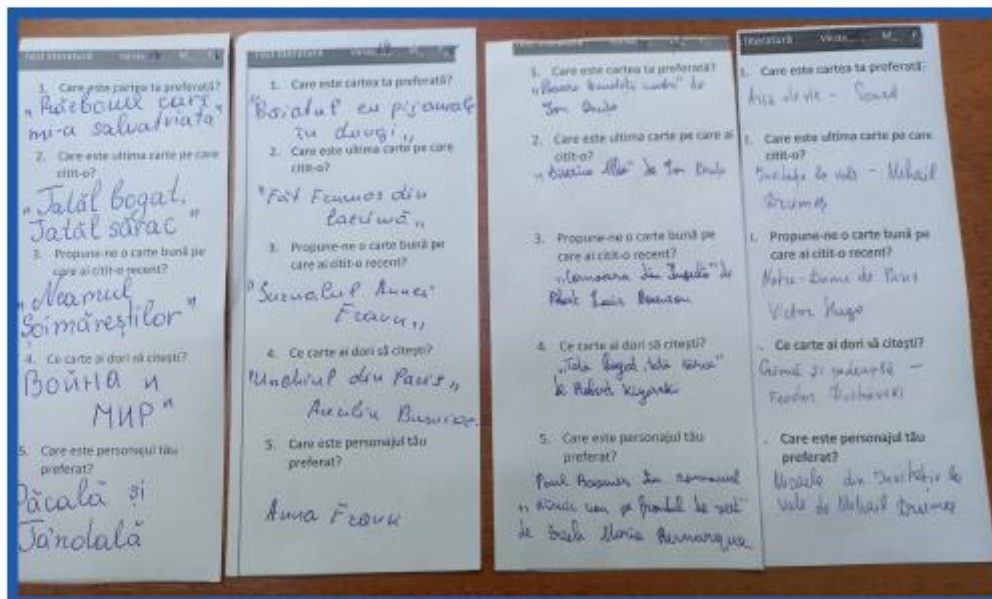 1. Care este cartea ta preferată?
mi-a salvat viața"
2. Care este ultima carte pe care
citit-o?
"Tatăl bogat,
Tatăl sărac"
3. Propune-ne o carte bună pe
care ai citit-o recent?
"Neamul
Șoimăreștilor"
4. Ce carte ai dori să citești?
Война и
МИР"
5. Care este personajul tău
preferat?
Păcală și
Tândală
1. Care este cartea ta preferată?
Băiatul cu pijamale
în dungi,,
2. Care este ultima carte pe care
citit-o?
"Făt Frumos din
lacrimă,,
3. Propune-ne o carte bună pe
care ai citit-o recent?
"Jurnalul Annei
Frank,,
4. Ce carte ai dori să citești?
"Unchiul din Paris,,
Aureliu Busuioc
5. Care este personajul tău
preferat?
Anna Frank
1. Care este cartea ta preferată?
de
Ion Druță
2. Care este ultima carte pe care ai
citit-o?
de Ion Druță
3. Propune-ne o carte bună pe
care ai citit-o recent?
"Comoara din Insulă" de
4. Ce carte ai dori să citești?
de Robert
5. Care este personajul tău
preferat?
Paul din romanul
pe frontul de vest"
de Maria
literatură
1. Care este cartea ta preferată:
Care este ultima carte pe care
citit-o?
Invitație la vals - Mihail
Drumeș
Propune-ne o carte bună pe
care ai citit-o recent?
Notre-Dame de Paris
Victor Hugo
Ce carte ai dori să citești?
Crimă și pedeapsă -
Feodor
Care este personajul tău
preferat?
din Invitație la
Vals de Mihail Drumeș